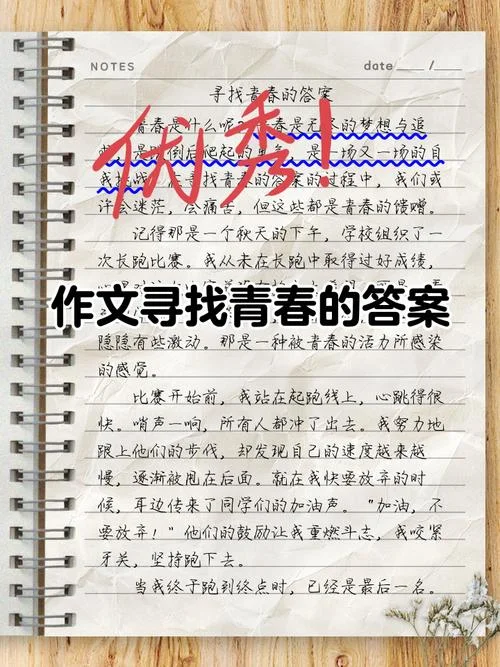 NOTES
date ___ / ___
寻找青春的答案
青春是什么呢 春是无 的梦想与追
是 倒后爬起的勇气，是一场又一场的自
我挑战。在寻找青春的答案的过程中，我们或
许会迷茫，会痛苦，但这些都是青春的馈赠。
优秀!
记得那是一个秋天的下午，学校组织了一
次长跑比赛。我从未在长跑中取得过好成绩，
作文寻找青春的答案
隐隐有些激动。那是一种被青春的活力所感染
的感觉。
比赛开始前，我站在起跑线上，心跳得很
快。哨声一响，所有人都冲了出去。我努力地
跟上他们的步伐，却发现自己的速度越来越
慢，逐渐被甩在后面。就在我快要放弃的时
候，耳边传来了同学们的加油声。“加油，不
要放弃！”他们的鼓励让我重燃斗志，我咬紧
牙关，坚持跑下去。
当我终于跑到终点时，已经是最后一名。